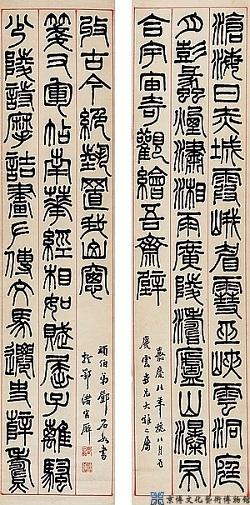 滄海日赤城霞峨眉雪巫峽雲洞庭
月彭蠡煙瀟湘雨廣陵濤廬山瀑布
合宇宙奇觀繪吾齋壁
嘉慶九年秋八月為
少陵詩摩詰畫左傳文馬遷史薛濤
箋右軍帖南華經相如賦屈子離騷
收古今絕藝置我山窗
頑伯弟鄧石如書
京傳文化藝術博物館